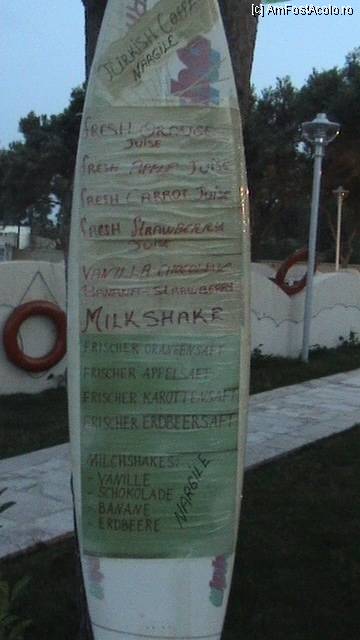 [c] AmFostAcolo.ro
TURKISH COFFE
NARGILE
FRESH ORANGE
JUISE
FRESH APPLE JUISE
FRESH CARROT JUISE
FRESH STRAWBERRY
JUISE
VANILLA CHOCOLATE
BANANA-STRAWBERRY
MILKSHAKE
FRISCHER ORANGENSAFT
FRISCHER APFELSAFT
FRISCHER KAROTTENSAFT
FRISCHER ERDBEERSAFT
MILCHSHAKES:
- VANILLE
- SCHOKOLADE
- BANANE
- ERDBEERE
NARGILE